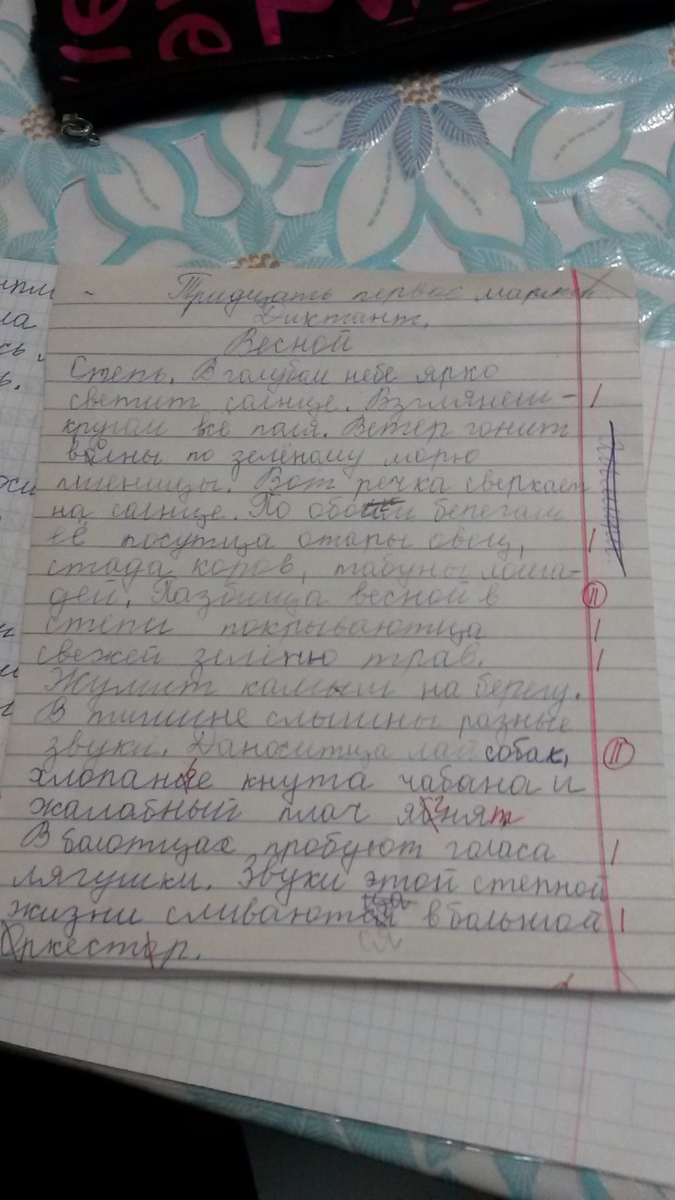 Тридцать первое марта
Диктант.
Весной
Степь. В голубом небе ярко
светит солнце. Взглянеш -
кругом все поля. Ветер гонит
волны по зелёному морю
пшеницы. Вот речка сверкает
на солнце. По обоим берегам
её посутца отары овец,
стада коров, табуны лоша-
дей. Весной в
степи покрываютца
свежей зеленю трав.
камыш на берегу.
В тишине слышны разные
звуки. Даноситца лай собак,
хлопание кнута чабана и
жалабный плач ягнят
В болотцах пробуют голаса
лягушки. Звуки этой степной
жизни сливаются в большой
Оркестр.